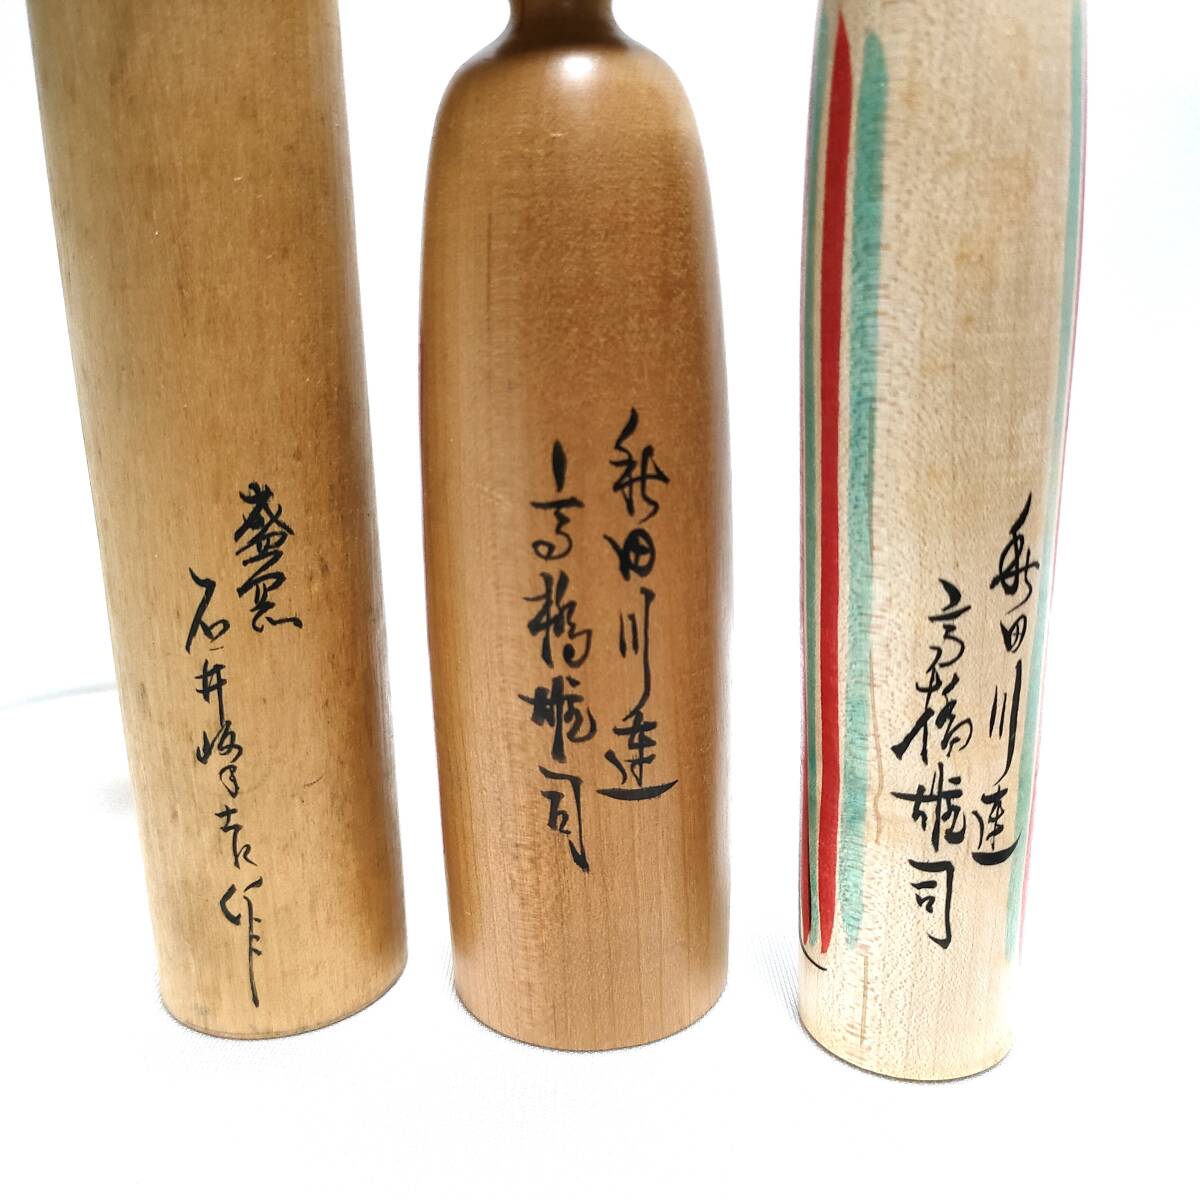 盛岡
石井峰吉作
秋田川連
高橋雄司
秋田川連
高橋雄司